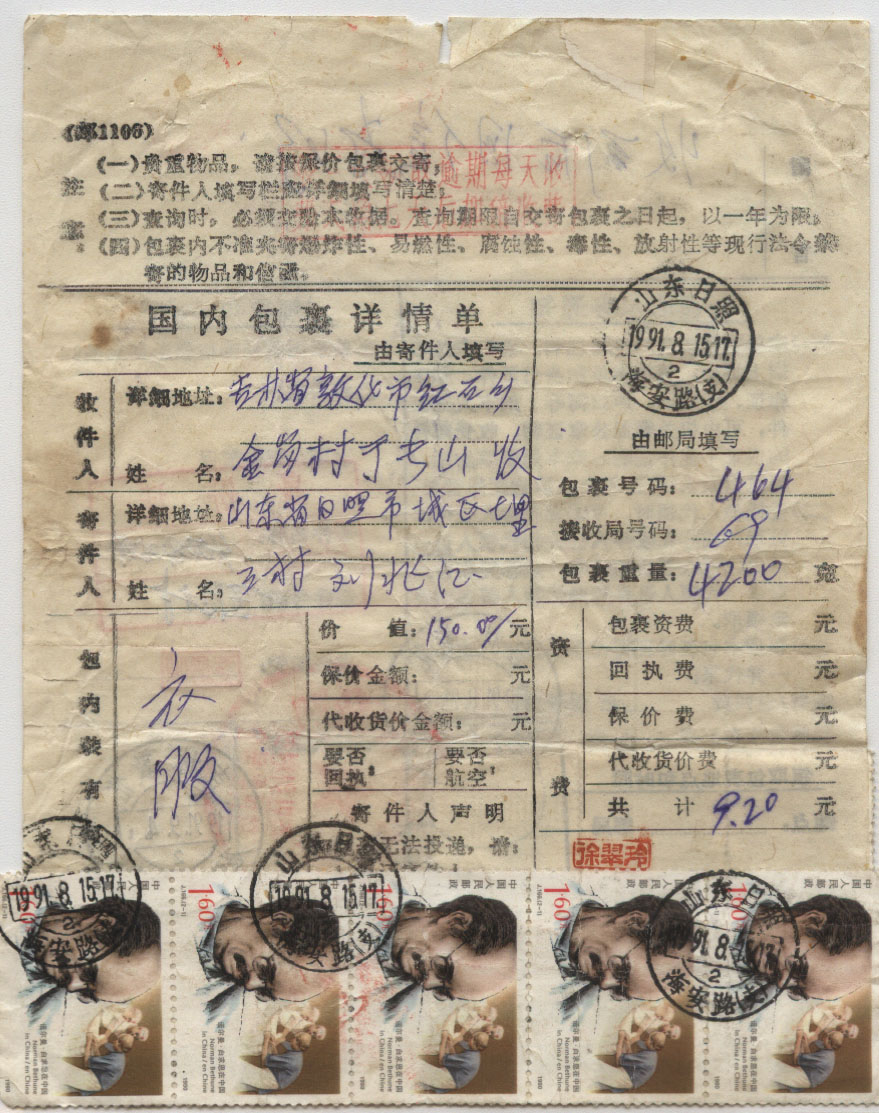 (邮1106)
注意：
(一)贵重物品，请按保价包裹交寄；
(二)寄件人填写栏应详细填写清楚；
(三)查询时，必须交验本收据。查询期限自交寄包裹之日起，以一年为限。
(四)包裹内不准夹寄爆炸性、易燃性、腐蚀性、毒性、放射性等现行法令禁
寄的物品和信函。
逾期每天收
国内包裹详情单
由寄件人填写
山东日照
1991.8.15.17.
2
海安路(支)
收件人
详细地址：吉林省敦化市红石乡
姓名：金岗村于长山 收
寄件人
详细地址：山东省日照市城
姓名：三村 刘兆江
由邮局填写
包裹号码：464
接收局号码：69
包裹重量：4200 克
包内装有
衣服
价值：150.00/元
保价金额：元
代收货价金额：元
要否回执：
要否航空：
寄件人声明
无法投递，请：
资费
包裹资费 元
回执费 元
保价费 元
代收货价费 元
共计 9.20 元
徐翠玲
山东日照
1991.8.15.17.
2
海安路(支)
山东日照
1991.8.15.17.
海安路(支)
山东日照
1991.8.15.17.
2
海安路(支)
1.60
中国人民邮政
J.166.(2-1)
诺尔曼·白求恩在中国
Norman Bethune
in China / en Chine
1990
1.60
中国人民邮政
诺尔曼·白求恩在中国
Norman Bethune
in China / en Chine
1990
1.60
中国人民邮政
诺尔曼·白求恩在中国
Norman Bethune
in China / en Chine
1990
1.60
中国人民邮政
J.166.(2-1)
诺尔曼·白求恩在中国
Norman Bethune
in China / en Chine
1990
1.60
中国人民邮政
诺尔曼·白求恩在中国
Norman Bethune
in China / en Chine
1990